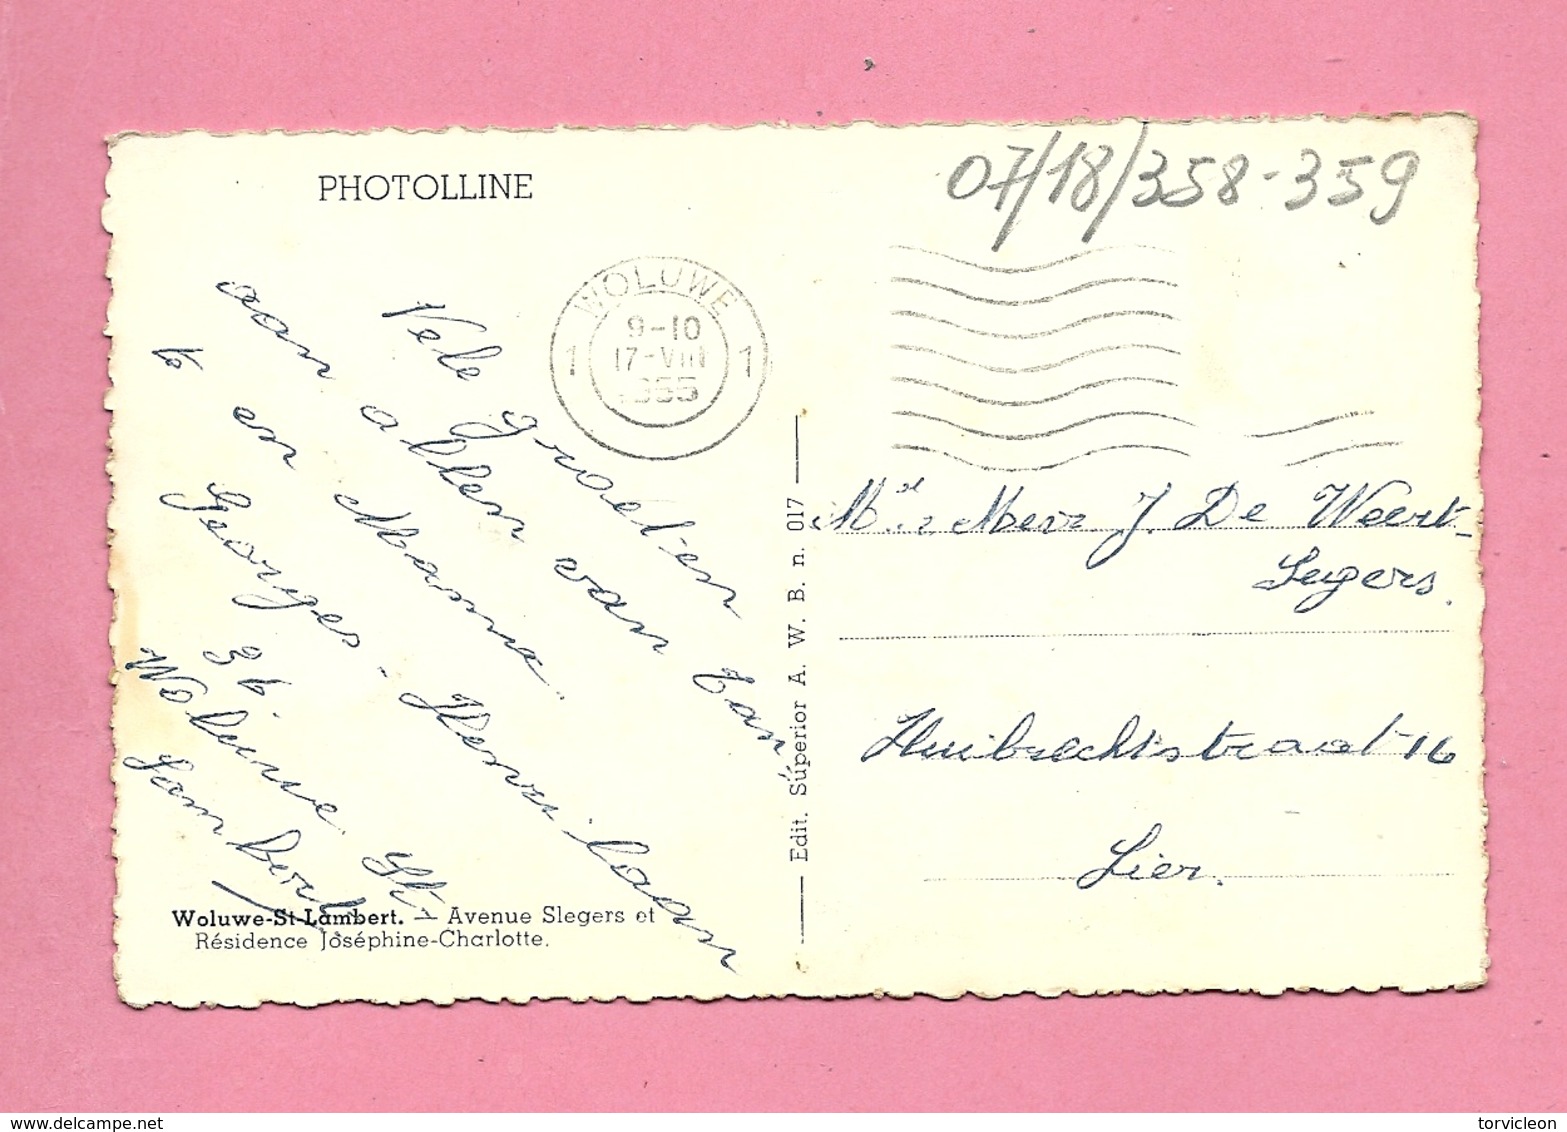 PHOTOLLINE
07/18/358-359
WOLUWE
9-10
1 17-VIII 1
1955
Vele groeten
aan allen van Can
en Mama.
Georges-Henrilaan
36.
Woluwe St-
Lambert
Mr Mevr J. De Weert-
Segers.
Huibrechtstraat 16
Lier.
Edit. Supérior A. W. B. n. 017
Woluwe-St-Lambert. — Avenue Slegers et
Résidence Joséphine-Charlotte.
www.delcampe.net
torvicleon